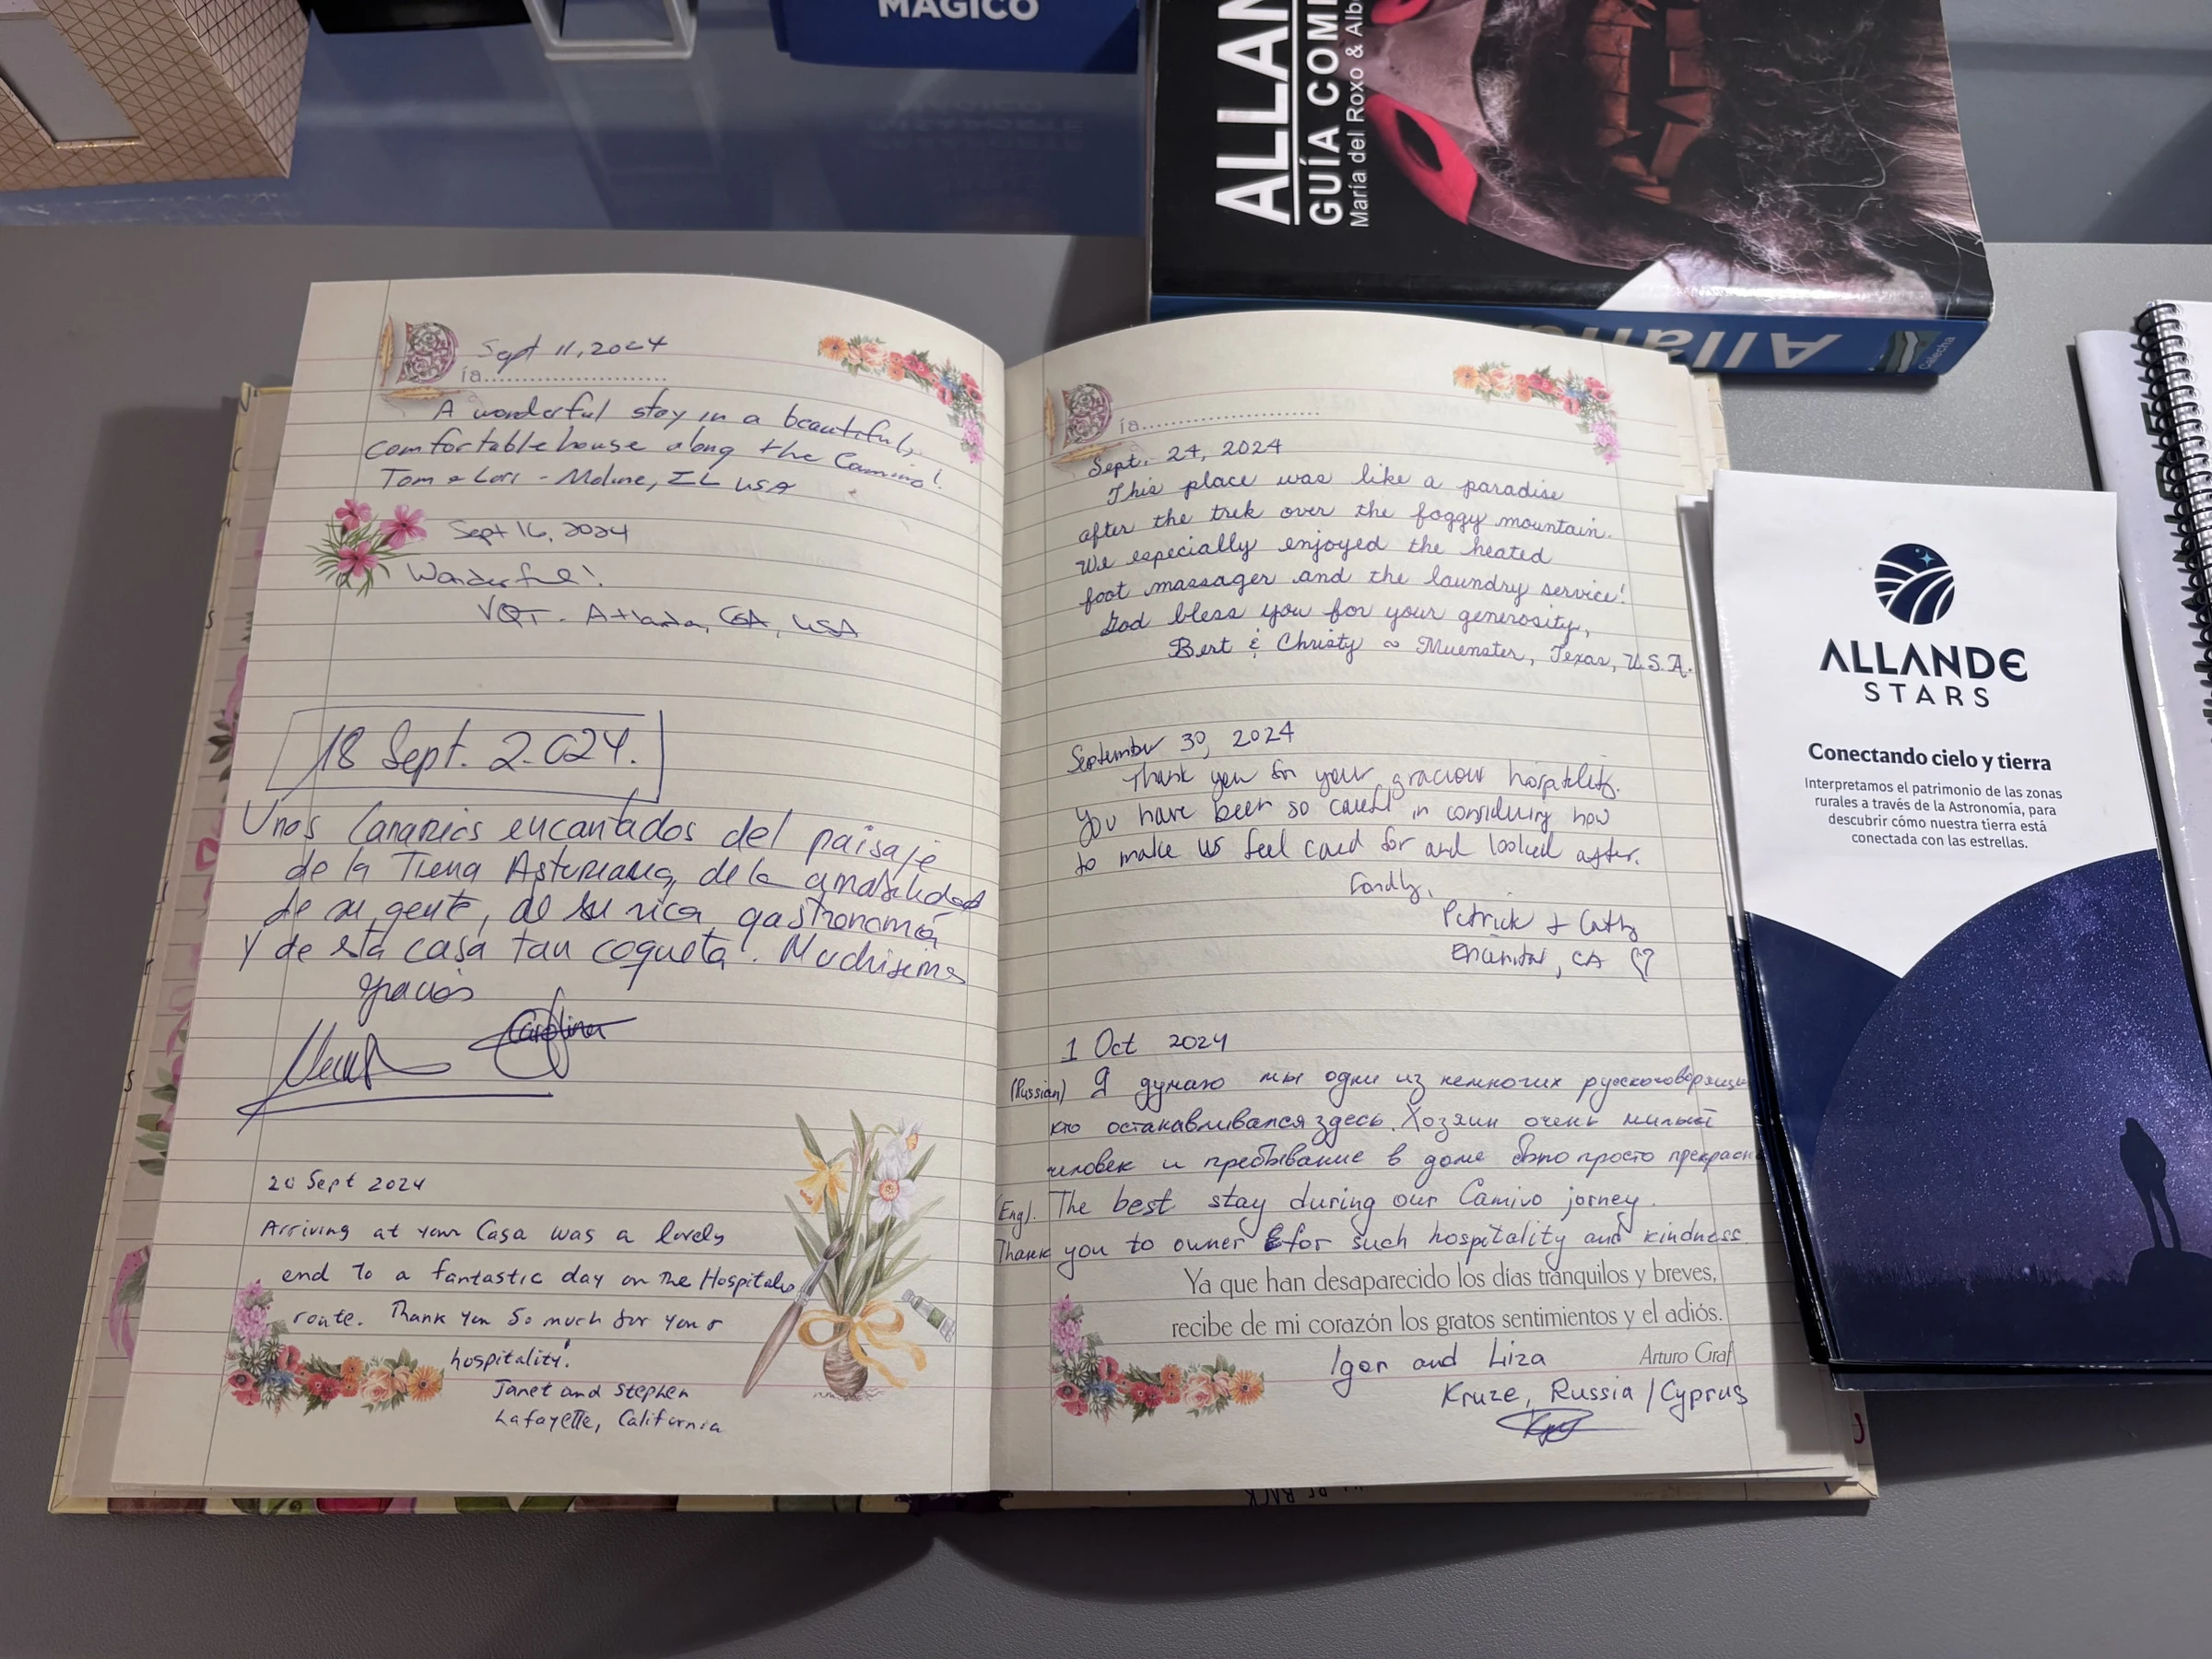 MÁGICO
ALLAN
GUÍA COM
María del Roxo & Alb
Calecha
Sept 11, 2024
Día
A wonderful stay in a beautiful,
comfortable house along the Camino!
Tom & Lori - Moline, IL USA
Sept 16, 2024
Wonderful!
VQT - Atlanta, GA, USA
18 Sept. 2024.
Unos Canarios encantados del paisaje
de la Tierra Asturiana, de la amabilidad
de su gente, de su rica gastronomía
y de esta casa tan coqueta! Muchísimas
gracias
Carolina
20 Sept 2024
Arriving at your Casa was a lovely
end to a fantastic day on the Hospitales
route. Thank you so much for your
hospitality!
Janet and Stephen
Lafayette, California
Día
Sept. 24, 2024
This place was like a paradise
after the trek over the foggy mountain.
We especially enjoyed the heated
foot massager and the laundry service!
God bless you for your generosity,
Bert & Christy ~ Muenster, Texas, U.S.A.
September 30, 2024
Thank you for your gracious hospitality.
You have been so careful in considering how
to make us feel cared for and looked after.
Fondly,
Patrick + Cathy
Encinitas, CA
1 Oct 2024
(Russian) Я думаю мы одни из немногих русскоговорящих
кто останавливался здесь. Хозяин очень милый
человек и пребывание в доме было просто прекрасн
(Eng). The best stay during our Camino jorney.
Thank you to owner for such hospitality and kindness.
Ya que han desaparecido los días tranquilos y breves,
recibe de mi corazón los gratos sentimientos y el adiós.
Arturo Graf
Igor and Liza
Kruze, Russia / Cyprus
ALLANDE
STARS
Conectando cielo y tierra
Interpretamos el patrimonio de las zonas
rurales a través de la Astronomía, para
descubrir cómo nuestra tierra está
conectada con las estrellas.